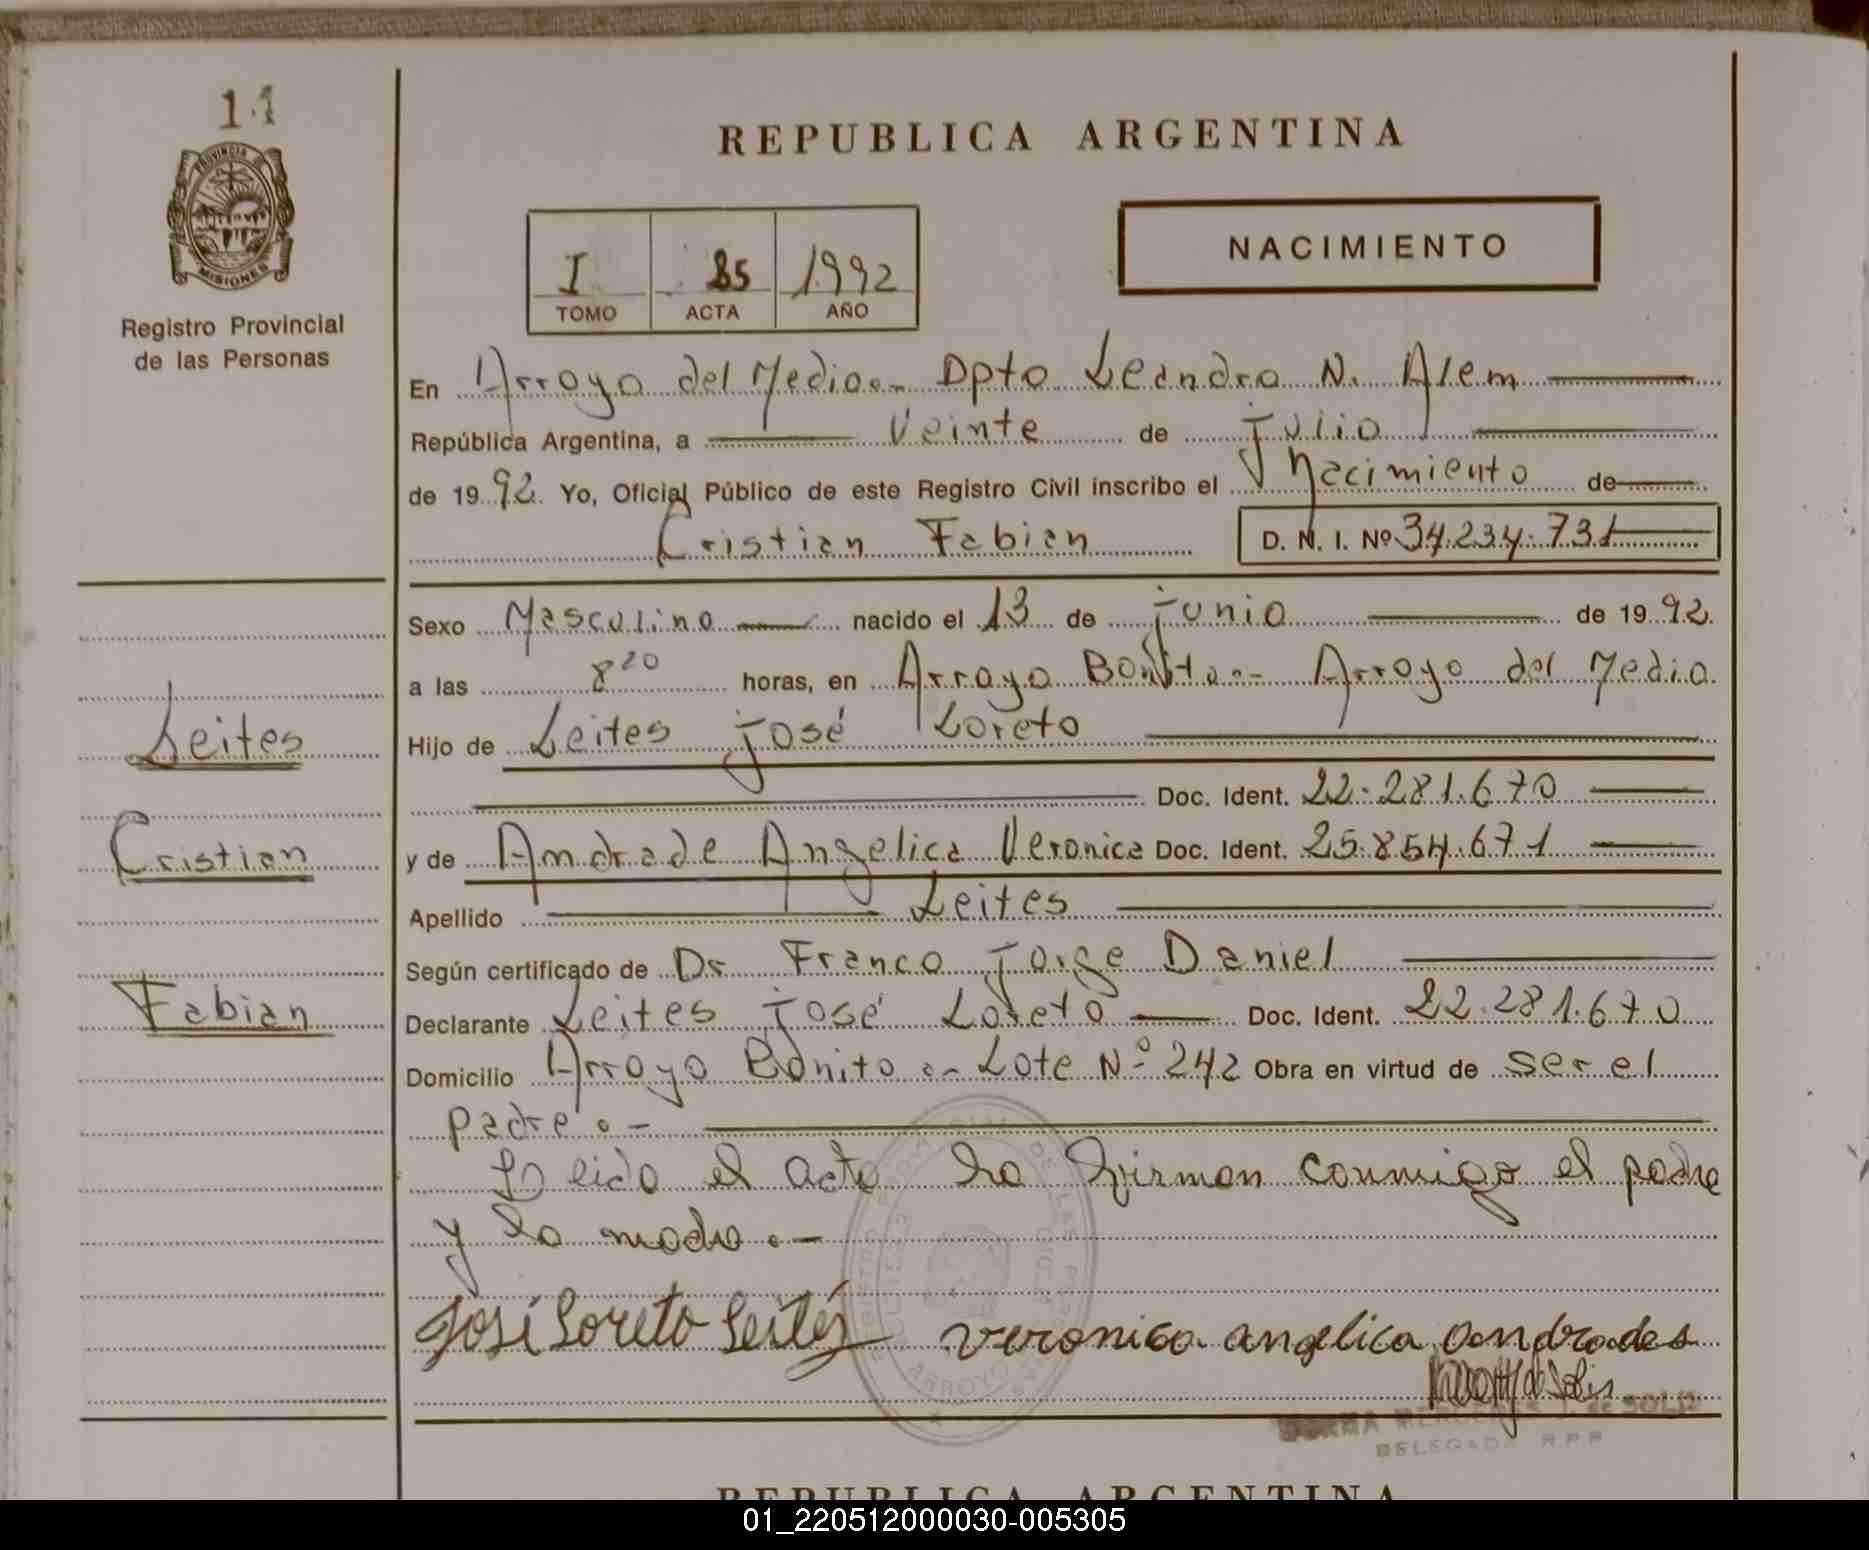 11
PROVINCIA DE
MISIONES
Registro Provincial
de las Personas
REPUBLICA ARGENTINA
I 85 1992
TOMO ACTA AÑO
NACIMIENTO
En Arroyo del Medio.- Dpto Leandro N. Alem
República Argentina, a Veinte de julio
de 1992. Yo, Oficial Público de este Registro Civil inscribo el Nacimiento de
Cristian Fabian D. N. I. Nº 34.234.731
Sexo Masculino nacido el 13 de junio de 1992.
a las 8 20 horas, en Arroyo Bonito.- Arroyo del Medio
Leites
Hijo de Leites José Loreto
Doc. Ident. 22.281.670
Cristian
y de Andrade Angelica Veronica Doc. Ident. 25.854.671
Apellido Leites
Según certificado de Dr Franco Jorge Daniel
Fabian
Declarante Leites José Loreto Doc. Ident. 22.281.670
Domicilio Arroyo Bonito.- Lote Nº 242 Obra en virtud de ser el
padre.-
leida el acta la firman conmigo el padre
y la madre.-
José Loreto Leites veronica angelica andrades
de Solis
MERCEDES de SOLIS
DELEGADA R.P.P.
REPUBLICA ARGENTINA
01_220512000030-005305